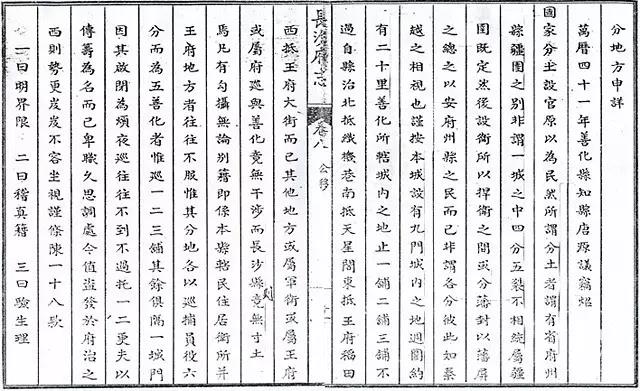 分地方申詳
萬曆四十一年善化縣知縣唐源議竊炤
國家分土設官原以為民然所謂分土者謂有省府州
縣疆圉之別非謂一城之中四分五裂不相統屬疆
圉既定然後設衛所以捍衛之間或分藩封以藩屏
之總之以安府州縣之民而已非謂各分彼此如秦
越之相視也謹按本城設有九門城內之地週圍約
有二十里善化所轄城內之地止一舖二舖三舖不
過自縣治北抵織機巷南抵天星閣東抵王府稻田
長沙府志
卷八
公移
西抵王府大街而已其他地方或屬軍衛或屬王府
或屬府巡與善化竟無干涉而長沙縣則竟無寸土
焉凡有勾攝無論別籍即係本縣轄民住居衛所并
王府地方者往往不服惟其分地各以巡捕員役六
分而為五善化者惟巡一二三舖其餘俱隔一城門
因其啟閉為煩夜巡往往不到不過托一二更夫以
傳籌為名而已卑職久思調處今值盜發於府治之
西則勢更岌岌不容坐視謹條陳一十八款
一曰明界限 二曰稽真籍 三曰驗生理